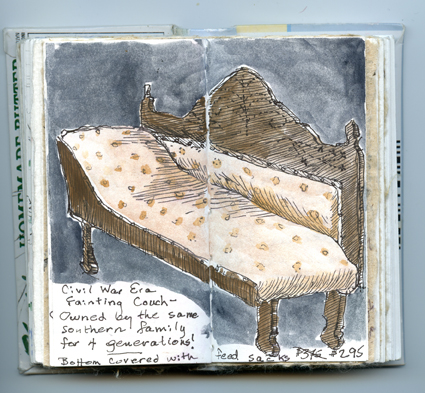 Civil War Era
Fainting Couch-
Owned by the same
southern family
for 4 generations!
Bottom covered with feed sacks $295
HOMEMADE BUTTER